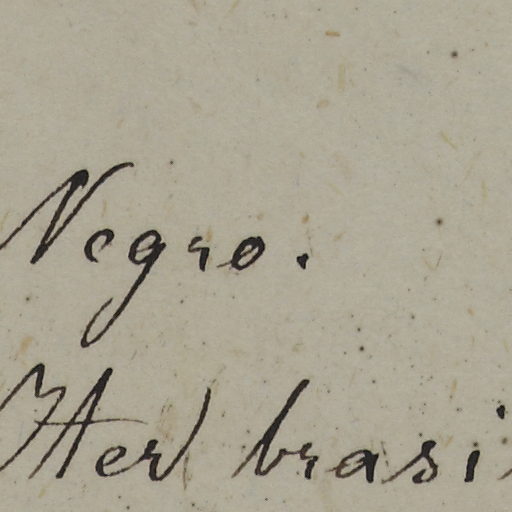 Negro.
Iter brasi